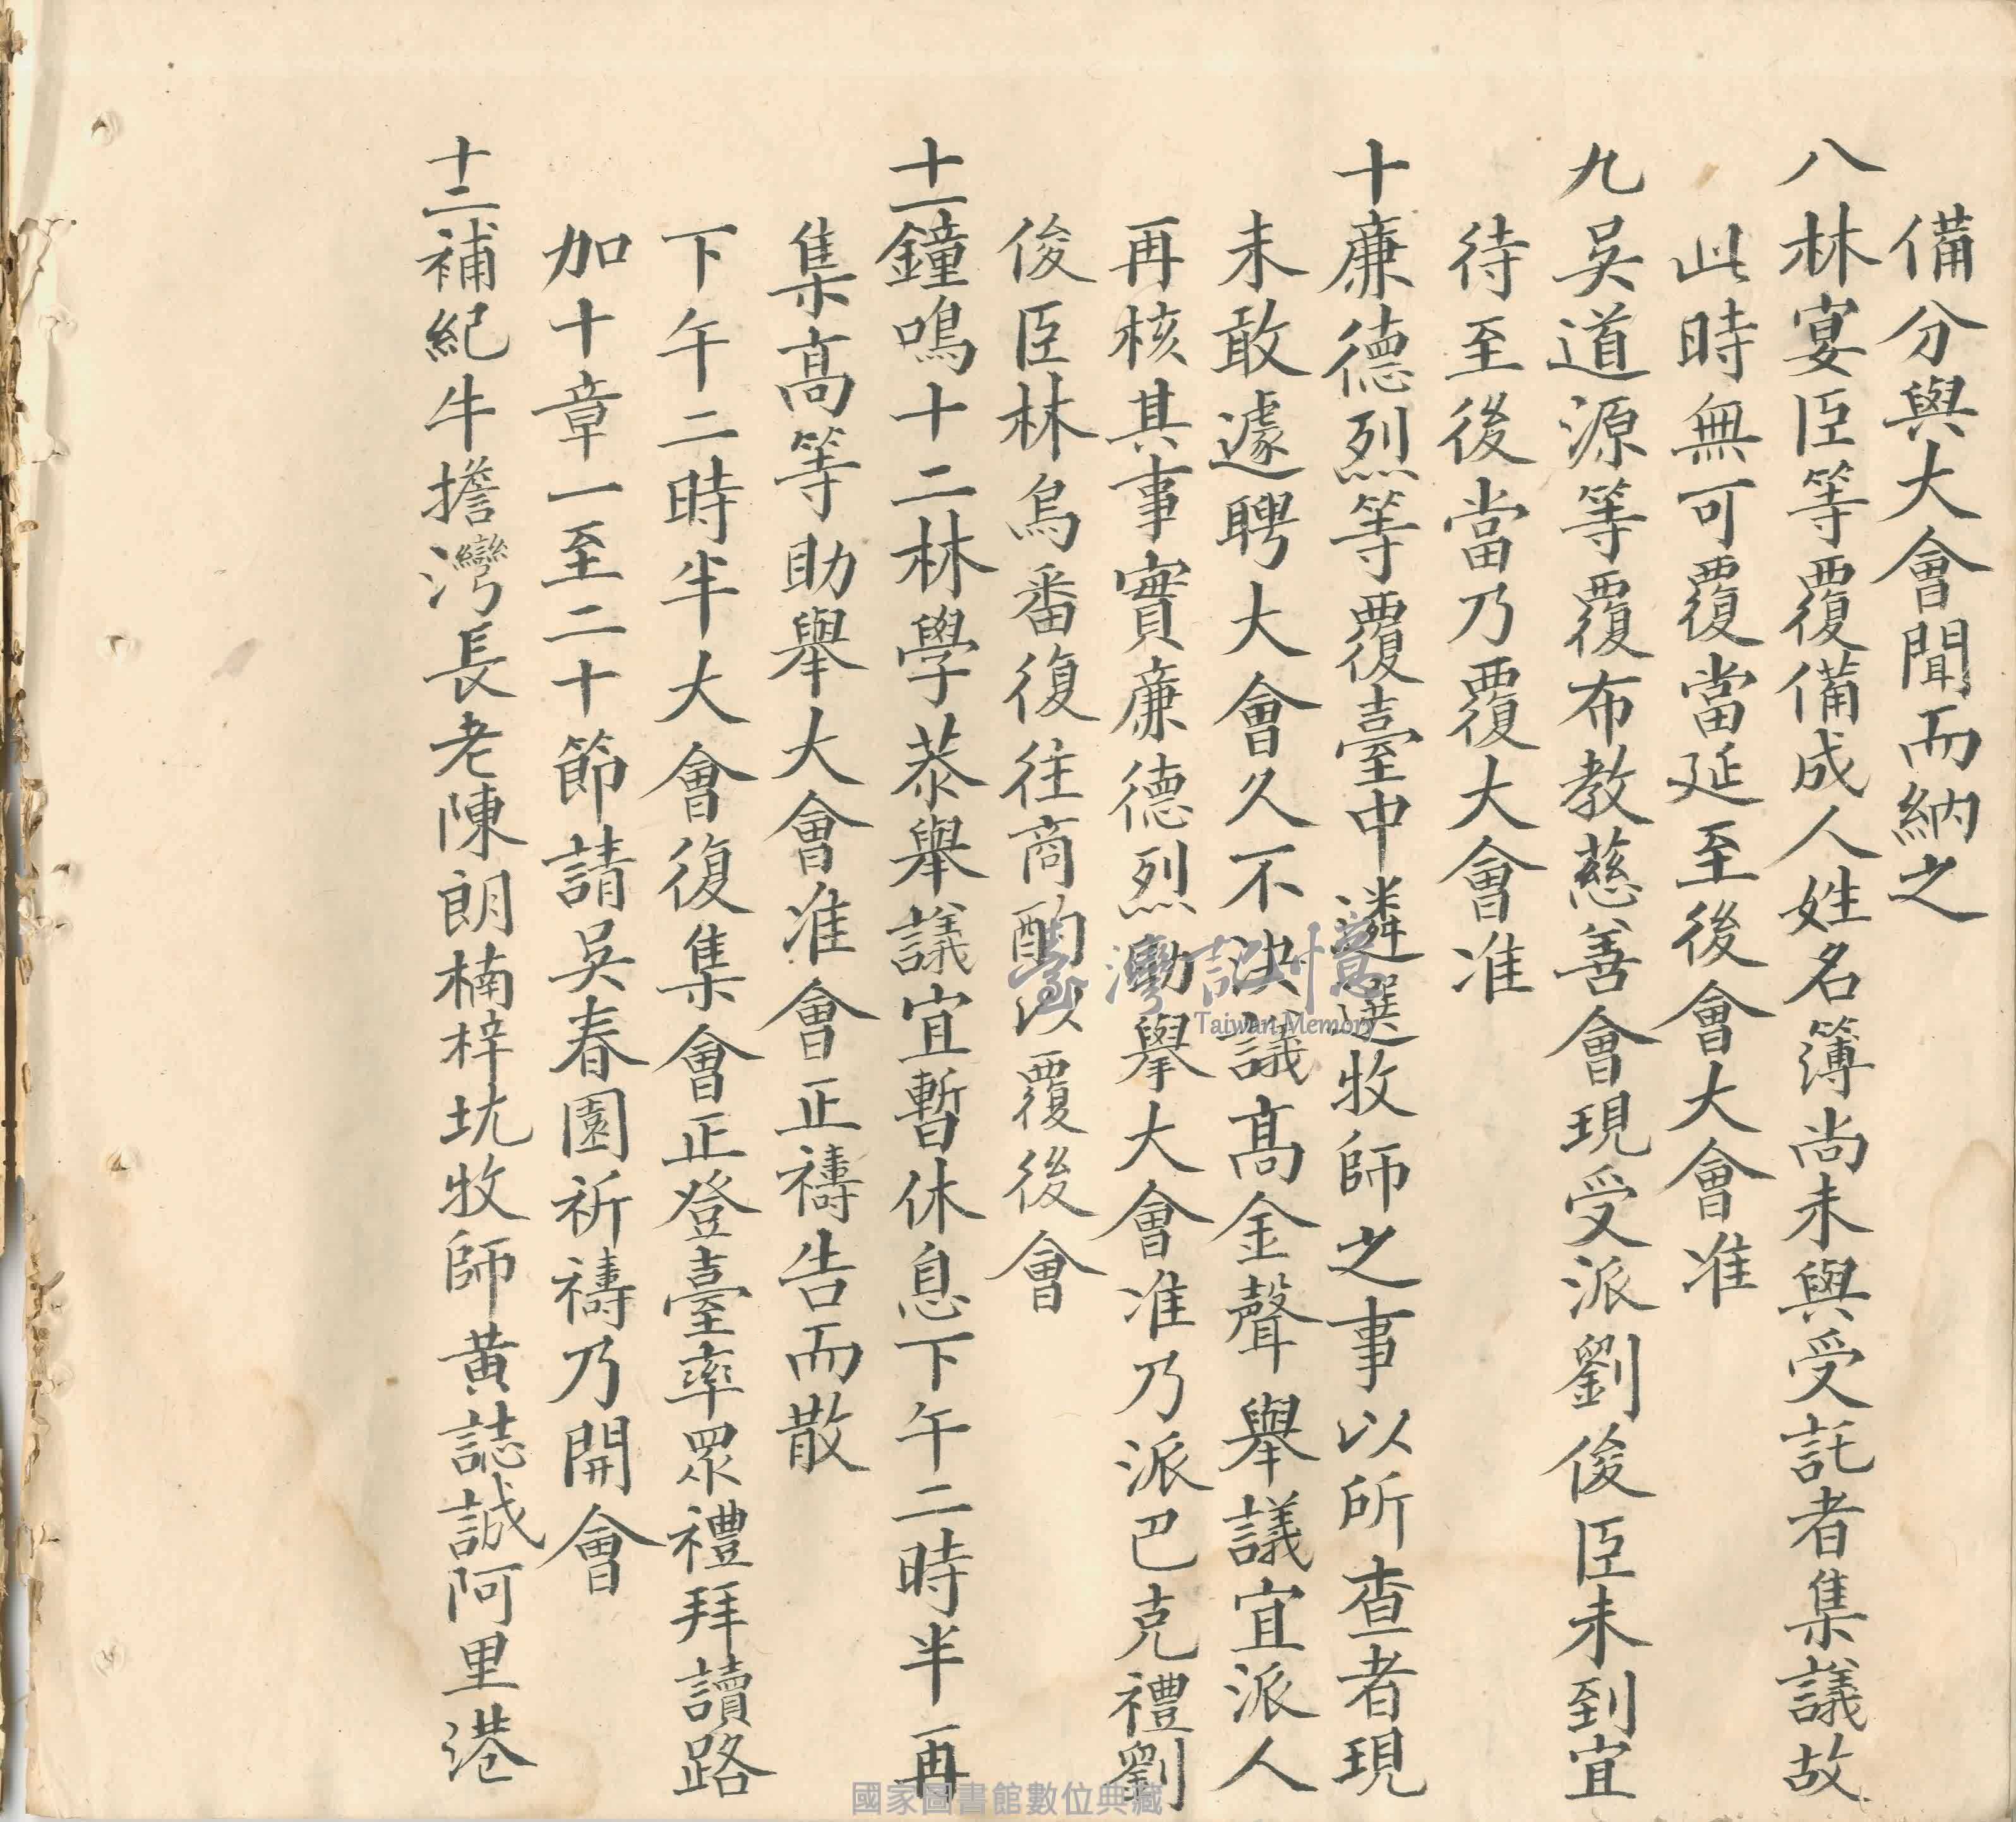 備分與大會聞而納之
八林宴臣等覆備成人姓名簿尚未與受託者集議故
此時無可覆當延至後會大會准
九吳道源等覆布教慈善會現受派劉俊臣未到宜
待至後當乃覆大會准
十廉德烈等覆臺中遴選牧師之事以所查者現
未敢遽聘大會久不決議高金聲舉議宜派人
再核其事實廉德烈勷舉大會准乃派巴克禮劉
俊臣林烏番復往商酌以覆後會
十一鐘鳴十二林學恭舉議宜暫休息下午二時半再
集高等助舉大會准會正禱告而散
下午二時半大會復集會正登臺率眾禮拜讀路
加十章一至二十節請吳春園祈禱乃開會
十二補紀牛擔灣長老陳朗楠梓坑牧師黃誌誠阿里港
臺灣記憶
Taiwan Memory
國家圖書館數位典藏